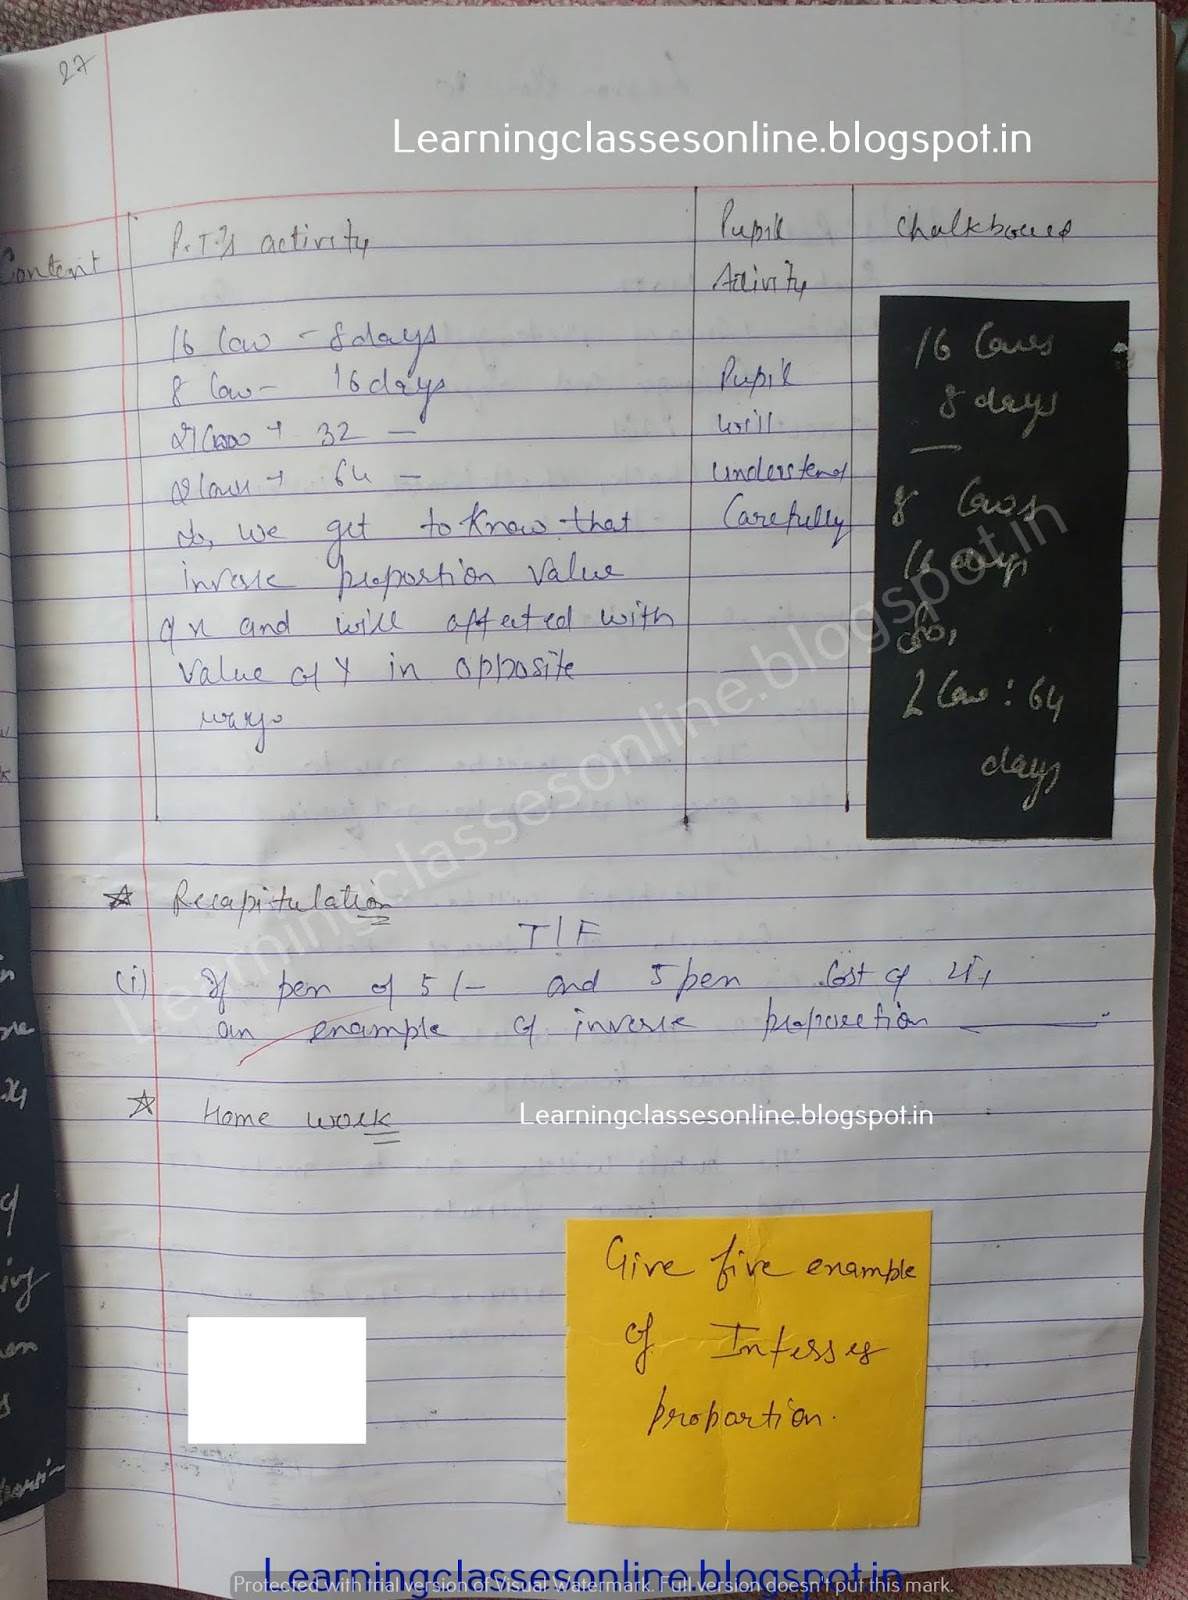 27
Learningclassesonline.blogspot.in
Content
P.T's activity
Pupil
Activity
Chalkboard
16 Cow - 8 days
8 Cow - 16 days
→ 32 -
→ 64 -
So, we get to know that
inverse proportion value
of x and will affected with
value of y in opposite
ways
Pupil
will
understand
Carefully
16 Cows
8 days
8 Cows
16 days
So,
2 Cow : 64
days
Learningclassesonline.blogspot.in
Recapitulation
T/F
(i) If pen of 5/- and 5 pen Cost of
an example of inverse proporetion
Home work
Learningclassesonline.blogspot.in
Give five example
of
proportion.
Learningclassesonline.blogspot.in
Protected with trial version of Visual Watermark. Full version doesn't put this mark.